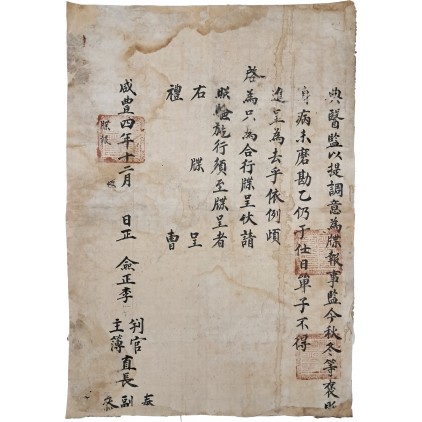 典醫監以提調意爲牒報事監今秋冬等褒貶
身病未磨勘乙仍于仕日單子不得
進呈爲去乎依例頉
啓爲只爲合行牒呈伏請
照驗施行須至牒呈者
右牒呈
禮曹
咸豊四年十二月 日正 僉正李 判官 主簿 直長 副
牒報